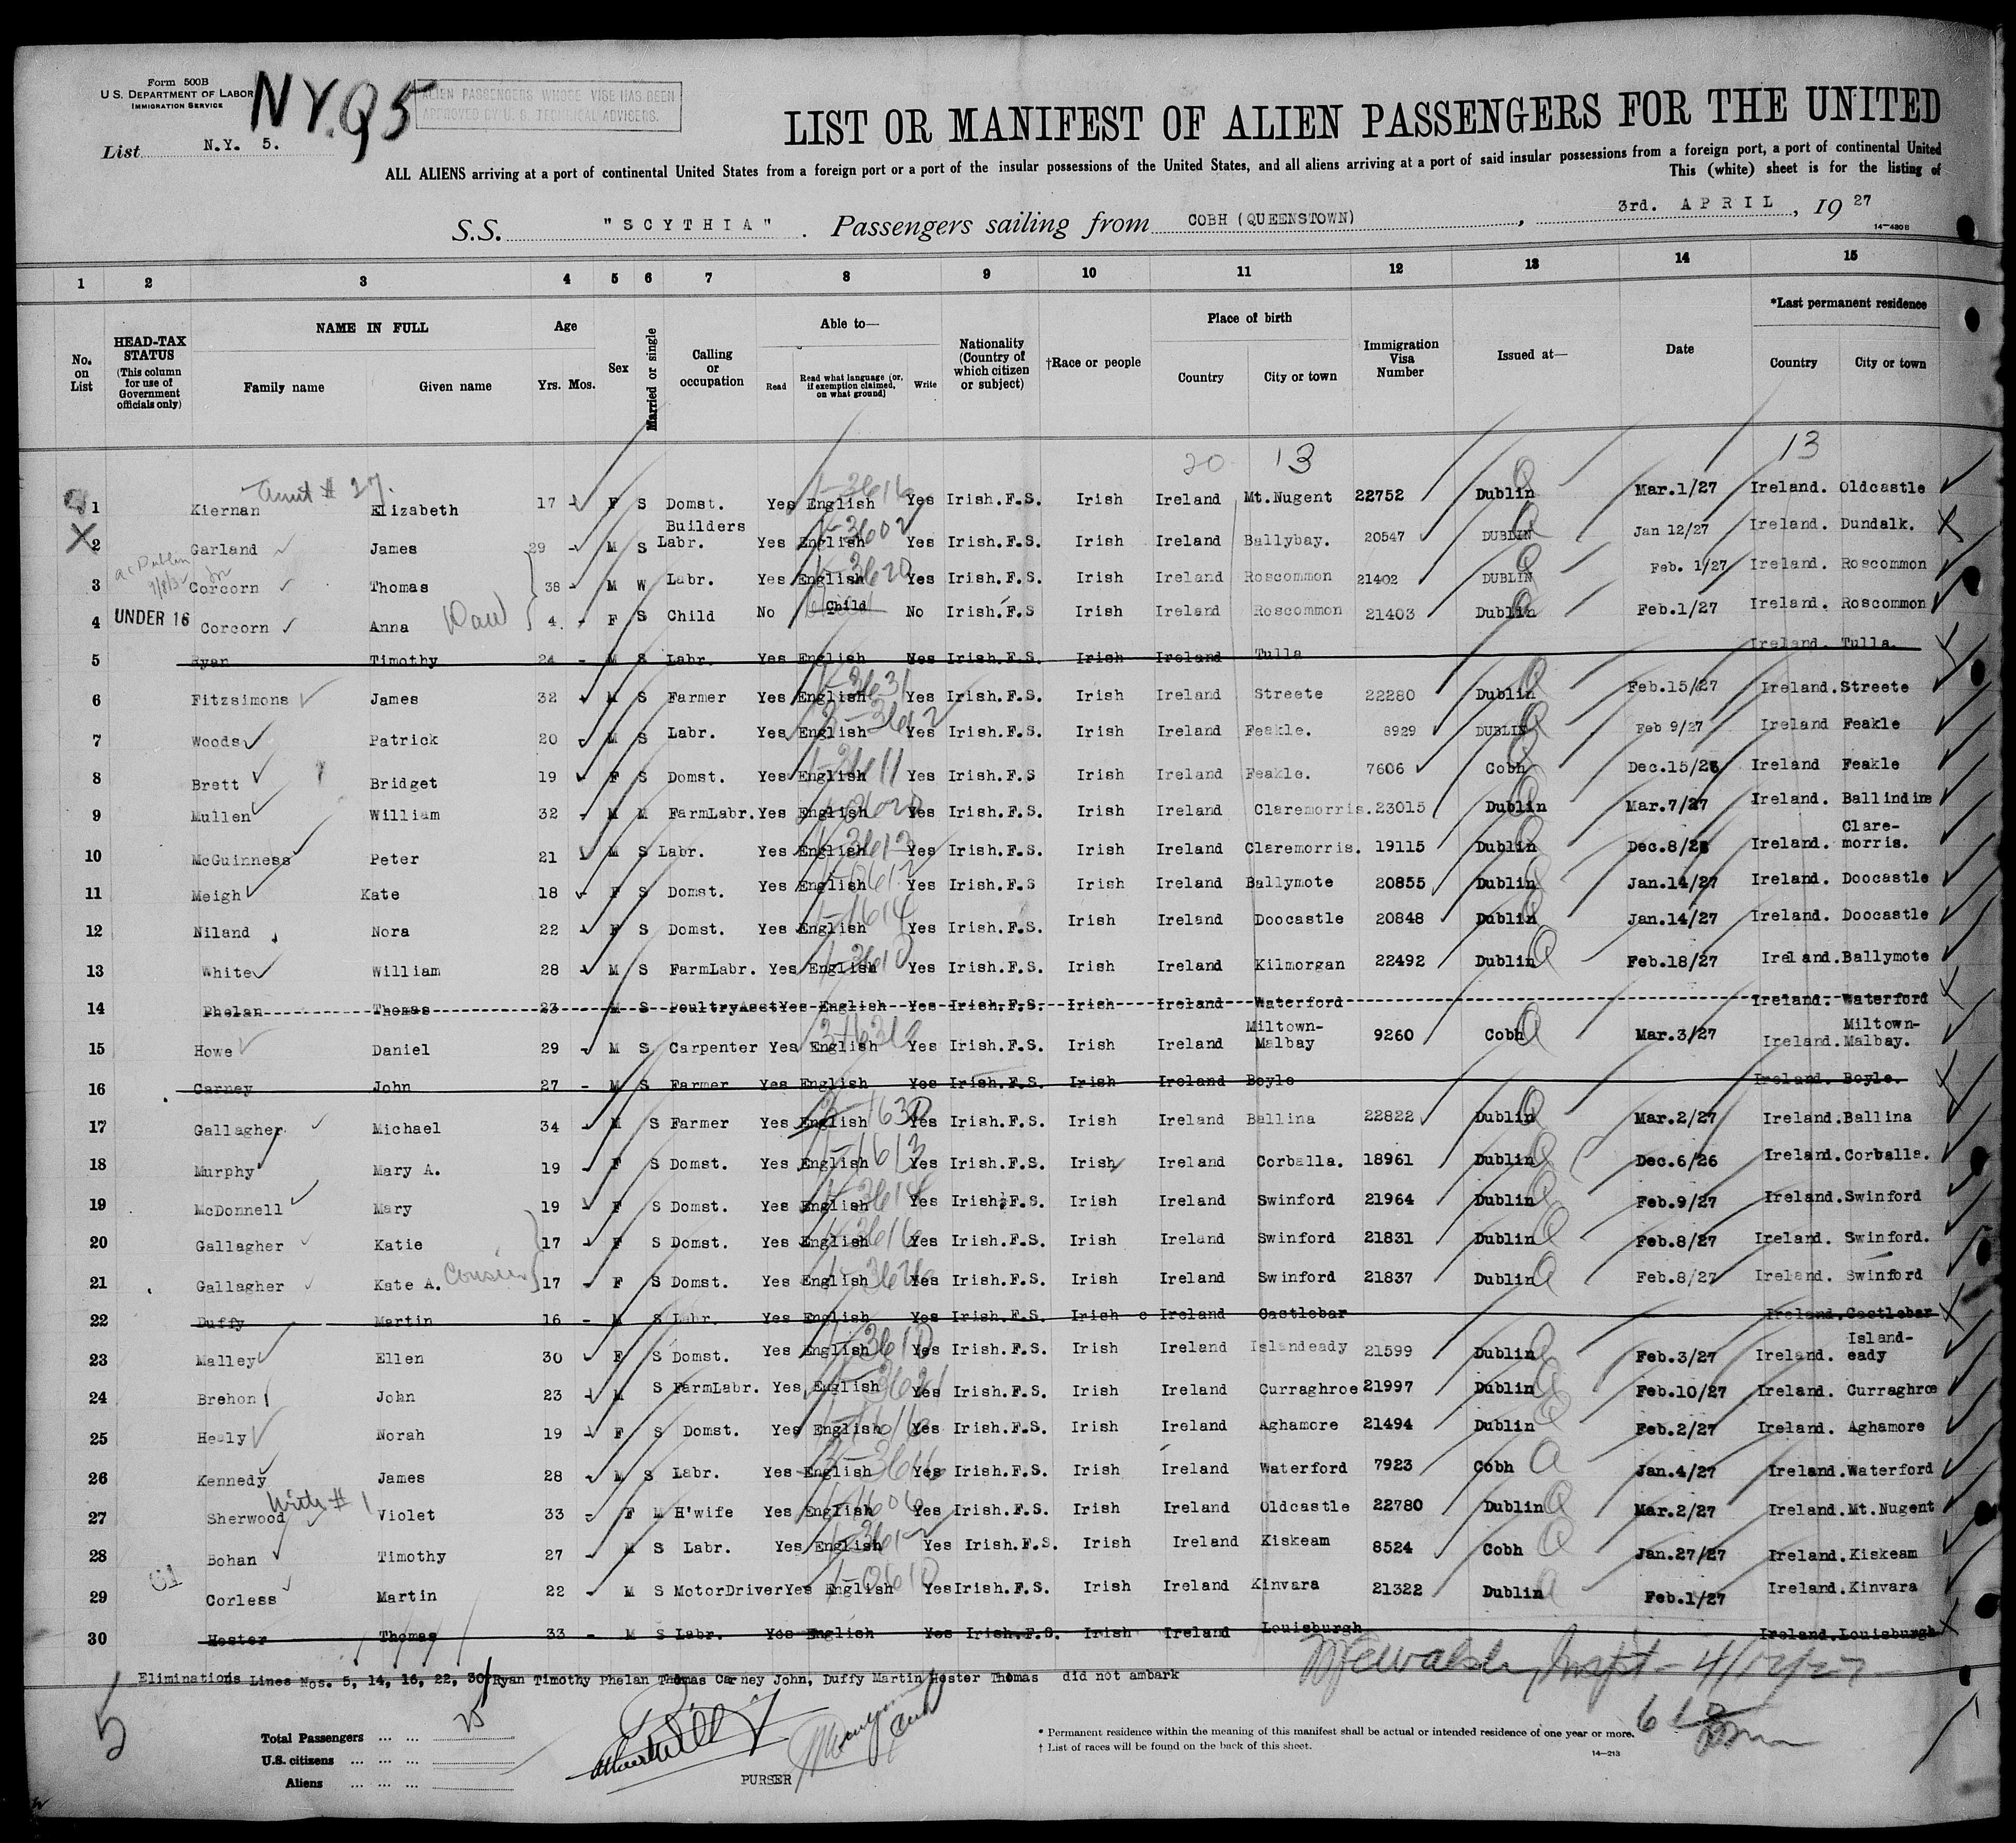 Form 500B
U. S. DEPARTMENT OF LABOR
IMMIGRATION SERVICE
N.Y. Q5
ALIEN PASSENGERS WHOSE VISE HAS BEEN
APPROVED BY U. S. TECHNICAL ADVISERS.
List N.Y. 5.
LIST OR MANIFEST OF ALIEN PASSENGERS FOR THE UNITED
ALL ALIENS arriving at a port of continental United States from a foreign port or a port of the insular possessions of the United States, and all aliens arriving at a port of said insular possessions from a foreign port, a port of continental United
This (white) sheet is for the listing of
S.S. "SCYTHIA" . Passengers sailing from COBH (QUEENSTOWN) , 3rd. APRIL , 19 27
14—480B
1 2 3 4 5 6 7 8 9 10 11 12 13 14 15
No. on List
HEAD-TAX STATUS (This column for use of Government officials only)
NAME IN FULL
Family name Given name
Age
Yrs. Mos.
Sex
Married or single
Calling or occupation
Able to—
Read
Read what language (or, if exemption claimed, on what ground)
Write
Nationality (Country of which citizen or subject)
†Race or people
Place of birth
Country City or town
Immigration Visa Number
Issued at—
Date
*Last permanent residence
Country City or town
20 13 13
Aunt # 27.
1 Kiernan Elizabeth 17 F S Domst. Yes English Yes Irish.F.S. Irish Ireland Mt.Nugent 22752 Dublin Mar.1/27 Ireland. Oldcastle
X 2 Garland James 29 - M S Builders Labr. Yes English Yes Irish.F.S. Irish Ireland Ballybay. 20547 DUBLIN Jan 12/27 Ireland. Dundalk.
3 Corcorn Thomas 38 - M W Labr. Yes English Yes Irish.F.S. Irish Ireland Roscommon 21402 DUBLIN Feb. 1/27 Ireland. Roscommon
4 UNDER 16 Corcorn Anna 4 - F S Child No Child No Irish.F.S Irish Ireland Roscommon 21403 Dublin Feb.1/27 Ireland. Roscommon
5 Ryan Timothy 24 - M S Labr. Yes English Yes Irish.F.S. Irish Ireland Tulla Ireland. Tulla.
6 Fitzsimons James 32 M S Farmer Yes English Yes Irish.F.S. Irish Ireland Streete 22280 Dublin Feb.15/27 Ireland. Streete
7 Woods Patrick 20 M S Labr. Yes English Yes Irish.F.S. Irish Ireland Feakle. 8929 DUBLIN Feb 9/27 Ireland Feakle
8 Brett Bridget 19 F S Domst. Yes English Yes Irish.F.S Irish Ireland Feakle. 7606 Cobh Dec.15/26 Ireland Feakle
9 Mullen William 32 M M FarmLabr. Yes English Yes Irish.F.S. Irish Ireland Claremorris. 23015 Dublin Mar.7/27 Ireland. Ballindine
10 McGuinness Peter 21 M S Labr. Yes English Yes Irish.F.S. Irish Ireland Claremorris. 19115 Dublin Dec.8/26 Ireland. Claremorris.
11 Meigh Kate 18 F S Domst. Yes English Yes Irish.F.S Irish Ireland Ballymote 20855 Dublin Jan.14/27 Ireland. Doocastle
12 Niland Nora 22 F S Domst. Yes English Yes Irish.F.S. Irish Ireland Doocastle 20848 Dublin Jan.14/27 Ireland. Doocastle
13 White William 28 M S FarmLabr. Yes English Yes Irish.F.S. Irish Ireland Kilmorgan 22492 Dublin Feb.18/27 Ireland. Ballymote
14 Phelan Thomas 23 M S PoultryAsst Yes English Yes Irish.F.S. Irish Ireland Waterford Ireland. Waterford
15 Howe Daniel 29 M S Carpenter Yes English Yes Irish.F.S. Irish Ireland Miltown-Malbay 9260 Cobh Mar.3/27 Ireland. Miltown-Malbay.
16 Carney John 27 - M S Farmer Yes English Yes Irish.F.S. Irish Ireland Boyle Ireland. Boyle.
17 Gallagher Michael 34 M S Farmer Yes English Yes Irish.F.S. Irish Ireland Ballina 22822 Dublin Mar.2/27 Ireland. Ballina
18 Murphy Mary A. 19 F S Domst. Yes English Yes Irish.F.S. Irish Ireland Corballa. 18961 Dublin Dec.6/26 Ireland. Corballa.
19 McDonnell Mary 19 F S Domst. Yes English Yes Irish.F.S. Irish Ireland Swinford 21964 Dublin Feb.9/27 Ireland. Swinford
20 Gallagher Katie 17 F S Domst. Yes English Yes Irish.F.S. Irish Ireland Swinford 21831 Dublin Feb.8/27 Ireland. Swinford.
21 Gallagher Kate A. Cousin 17 F S Domst. Yes English Yes Irish.F.S. Irish Ireland Swinford 21837 Dublin Feb.8/27 Ireland. Swinford
22 Duffy Martin 16 - M S Labr. Yes English Yes Irish.F.S. Irish Ireland Castlebar Ireland. Castlebar
23 Malley Ellen 30 F S Domst. Yes English Yes Irish.F.S. Irish Ireland Islandeady 21599 Dublin Feb.3/27 Ireland. Island-eady
24 Brehon John 23 M S FarmLabr. Yes English Yes Irish.F.S. Irish Ireland Curraghroe 21997 Dublin Feb.10/27 Ireland. Curraghroe
25 Healy Norah 19 F S Domst. Yes English Yes Irish.F.S. Irish Ireland Aghamore 21494 Dublin Feb.2/27 Ireland. Aghamore
26 Kennedy James 28 M S Labr. Yes English Yes Irish.F.S. Irish Ireland Waterford 7923 Cobh Jan.4/27 Ireland. Waterford
With # 1
27 Sherwood Violet 33 F M H'wife Yes English Yes Irish.F.S. Irish Ireland Oldcastle 22780 Dublin Mar.2/27 Ireland. Mt.Nugent
28 Bohan Timothy 27 M S Labr. Yes English Yes Irish.F.S. Irish Ireland Kiskeam 8524 Cobh Jan.27/27 Ireland. Kiskeam
29 Corless Martin 22 M S MotorDriver Yes English Yes Irish.F.S. Irish Ireland Kinvara 21322 Dublin Feb.1/27 Ireland. Kinvara
30 Hester Thomas 33 - M S Labr. Yes English Yes Irish.F.S. Irish Ireland Louisburgh Ireland. Louisburgh
Eliminations Lines Nos. 5, 14, 16, 22, 30 Ryan Timothy Phelan Thomas Carney John, Duffy Martin Hester Thomas did not ambark
Total Passengers ... ... 25
U.S. citizens ... ... ...
Aliens ... ... ...
PURSER
* Permanent residence within the meaning of this manifest shall be actual or intended residence of one year or more.
† List of races will be found on the back of this sheet.
14—213